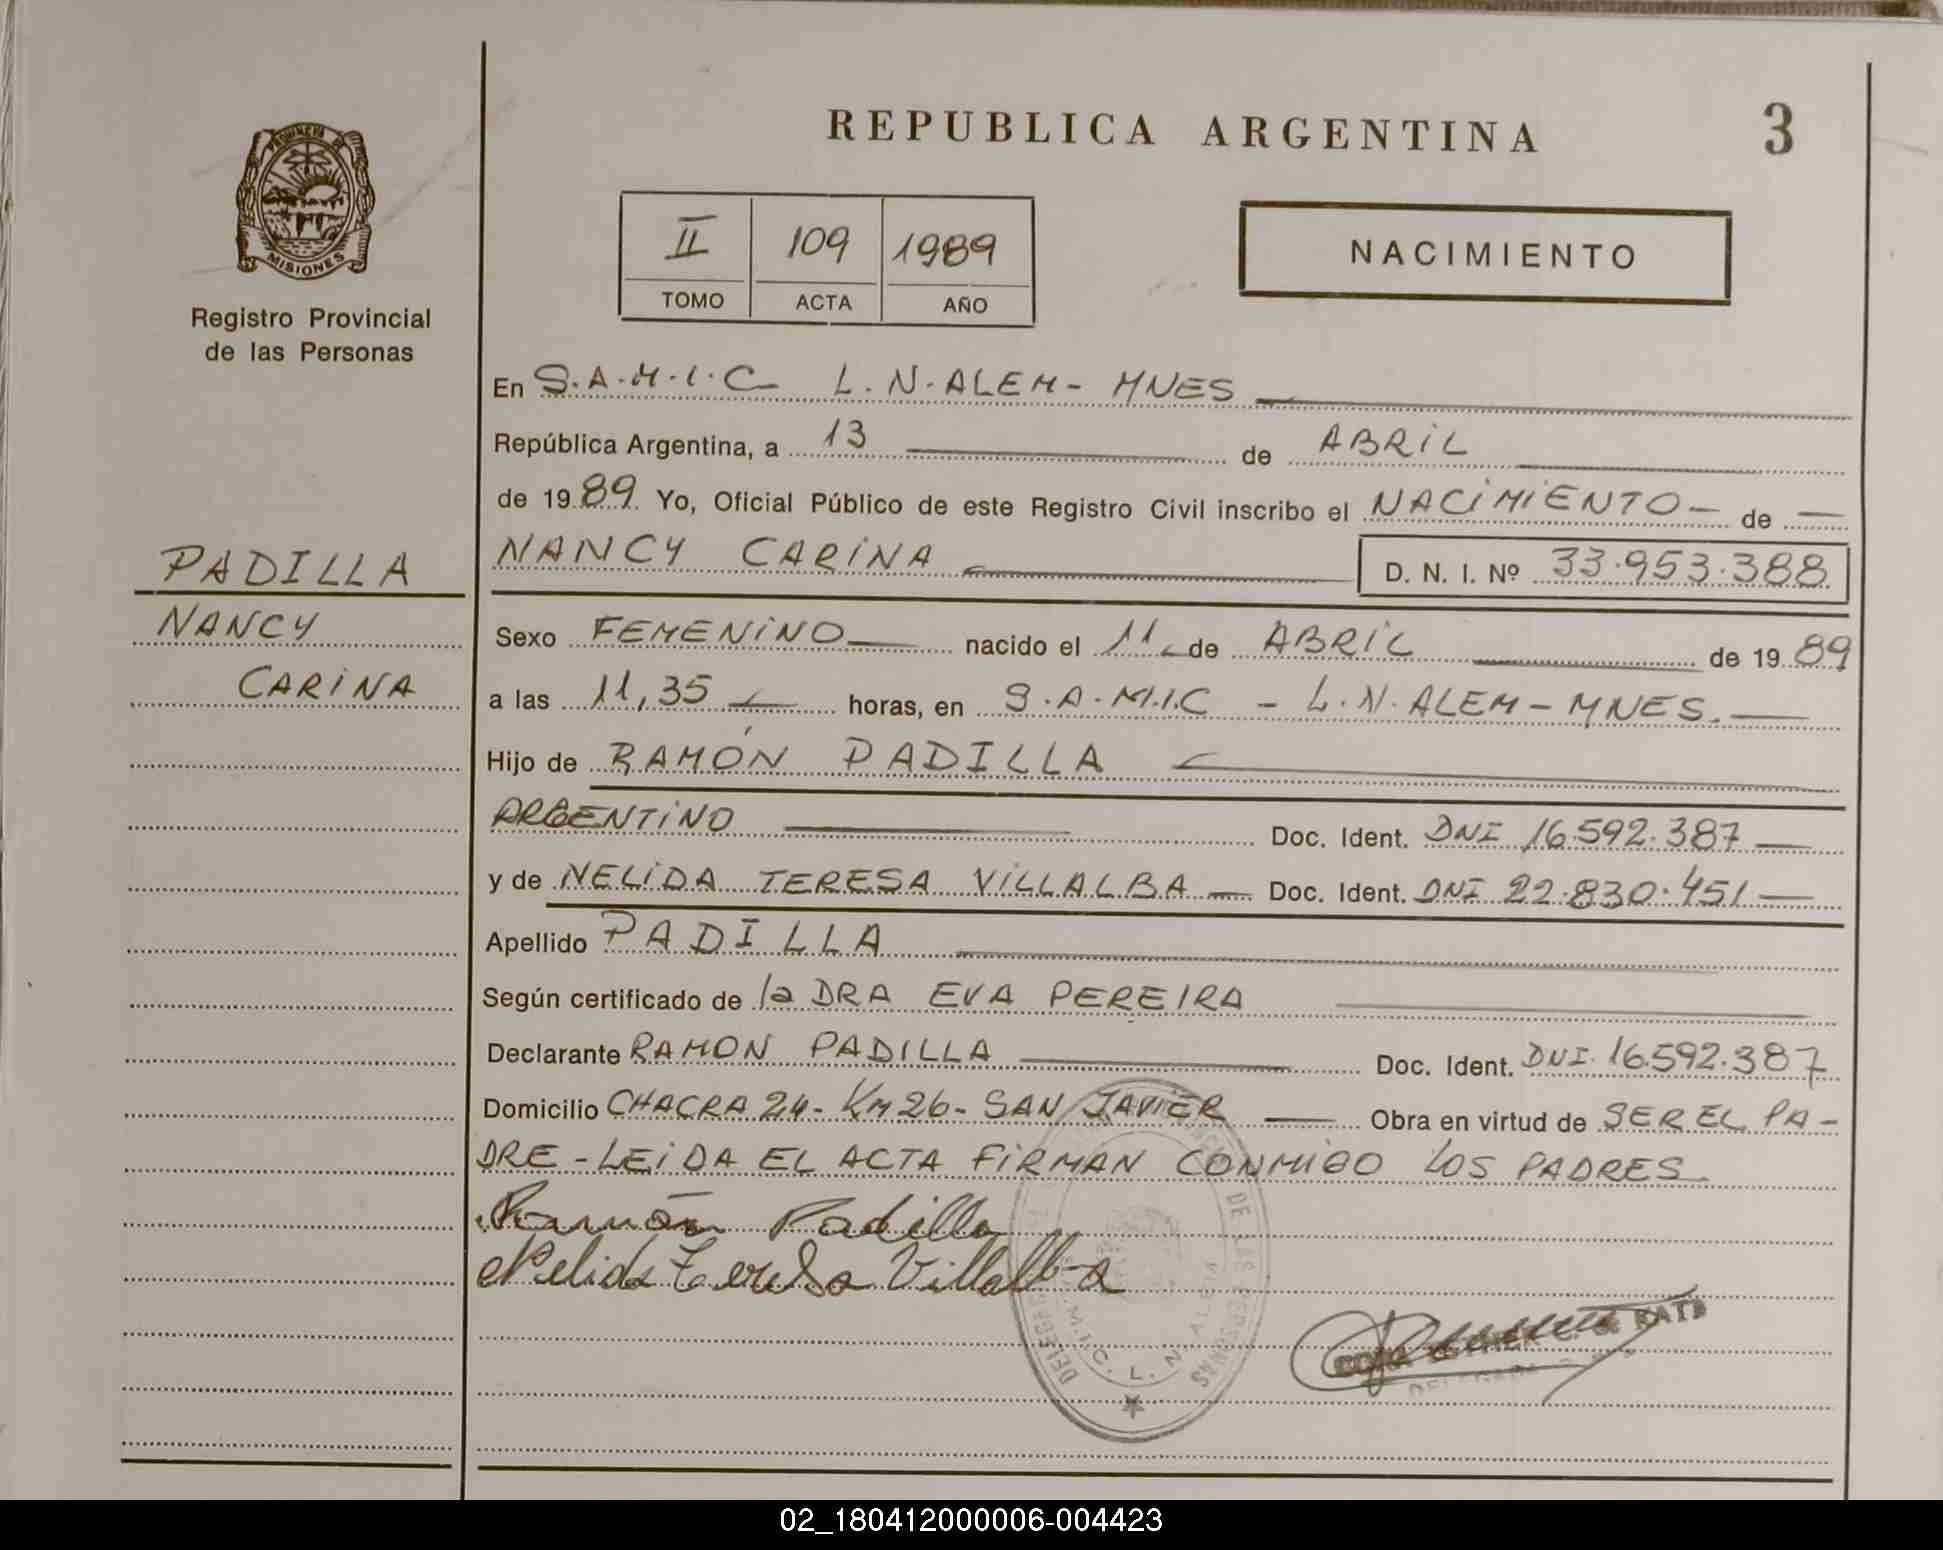 REPUBLICA ARGENTINA
3
PROVINCIA DE
MISIONES
Registro Provincial
de las Personas
II 109 1989
TOMO ACTA AÑO
NACIMIENTO
En S.A.M.I.C L.N.ALEM- MNES
República Argentina, a 13 de ABRIL
de 1989 Yo, Oficial Público de este Registro Civil inscribo el NACIMIENTO- de
NANCY CARINA D. N. I. Nº 33.953.388
PADILLA
NANCY
CARINA
Sexo FEMENINO nacido el 11 de ABRIL de 1989
a las 11,35 horas, en S.A.M.I.C - L.N.ALEM-MNES.
Hijo de RAMÓN PADILLA
ARGENTINO Doc. Ident. DNI 16.592.387
y de NELIDA TERESA VILLALBA Doc. Ident. DNI 22.830.451
Apellido PADILLA
Según certificado de la DRA EVA PEREIRA
Declarante RAMON PADILLA Doc. Ident. DNI. 16.592.387
Domicilio CHACRA 24- Km 26- SAN JAVIER Obra en virtud de SER EL PA-
DRE-LEIDA EL ACTA FIRMAN CONMIGO LOS PADRES
Ramón Padilla
Nelida Teresa Villalba
DE LAS PERSONAS
L. N. ALEM
DELEGADA
02_180412000006-004423